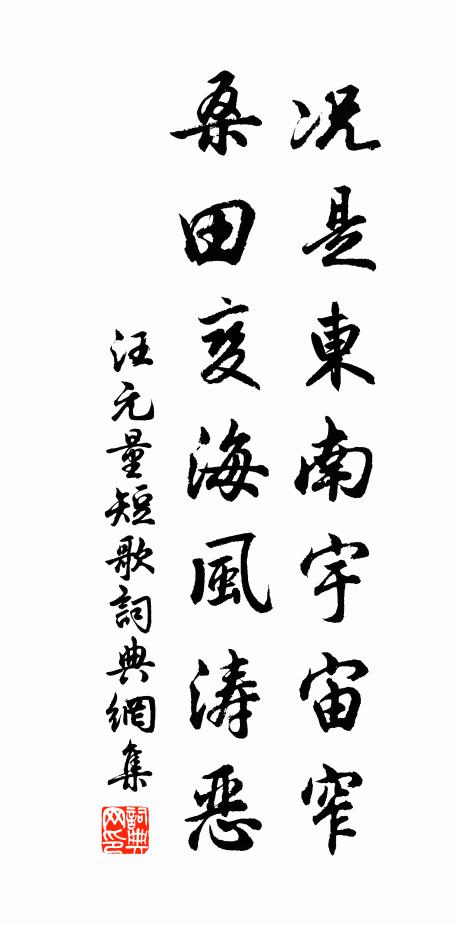 况是東南宇宙窄
桑田变海風涛惡
汪元量短歌詞典網集
詞典網印